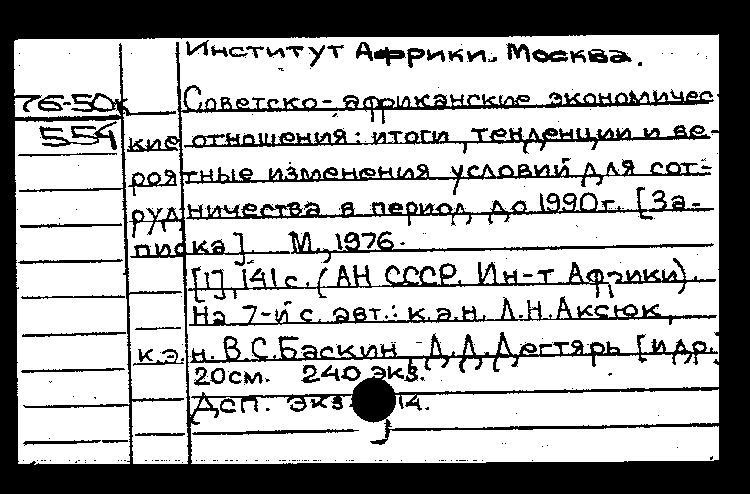 Институт Африки. Москва.
76-50к Советско-африканские экономичес-
554 кие отношения: итоги, тенденции и ве-
роятные изменения условий для сот-
рудничества в период до 1990г. [За-
писка]. М., 1976.
[1], 141 с. (АН СССР. Ин-т Африки).
На 7-й с. авт.: к.э.н. Л.Н.Аксюк,
к.э.н. В.С.Баскин, Д.Д.Дегтярь [и др.
20см. 240 экз.
Дсп. экз 14.